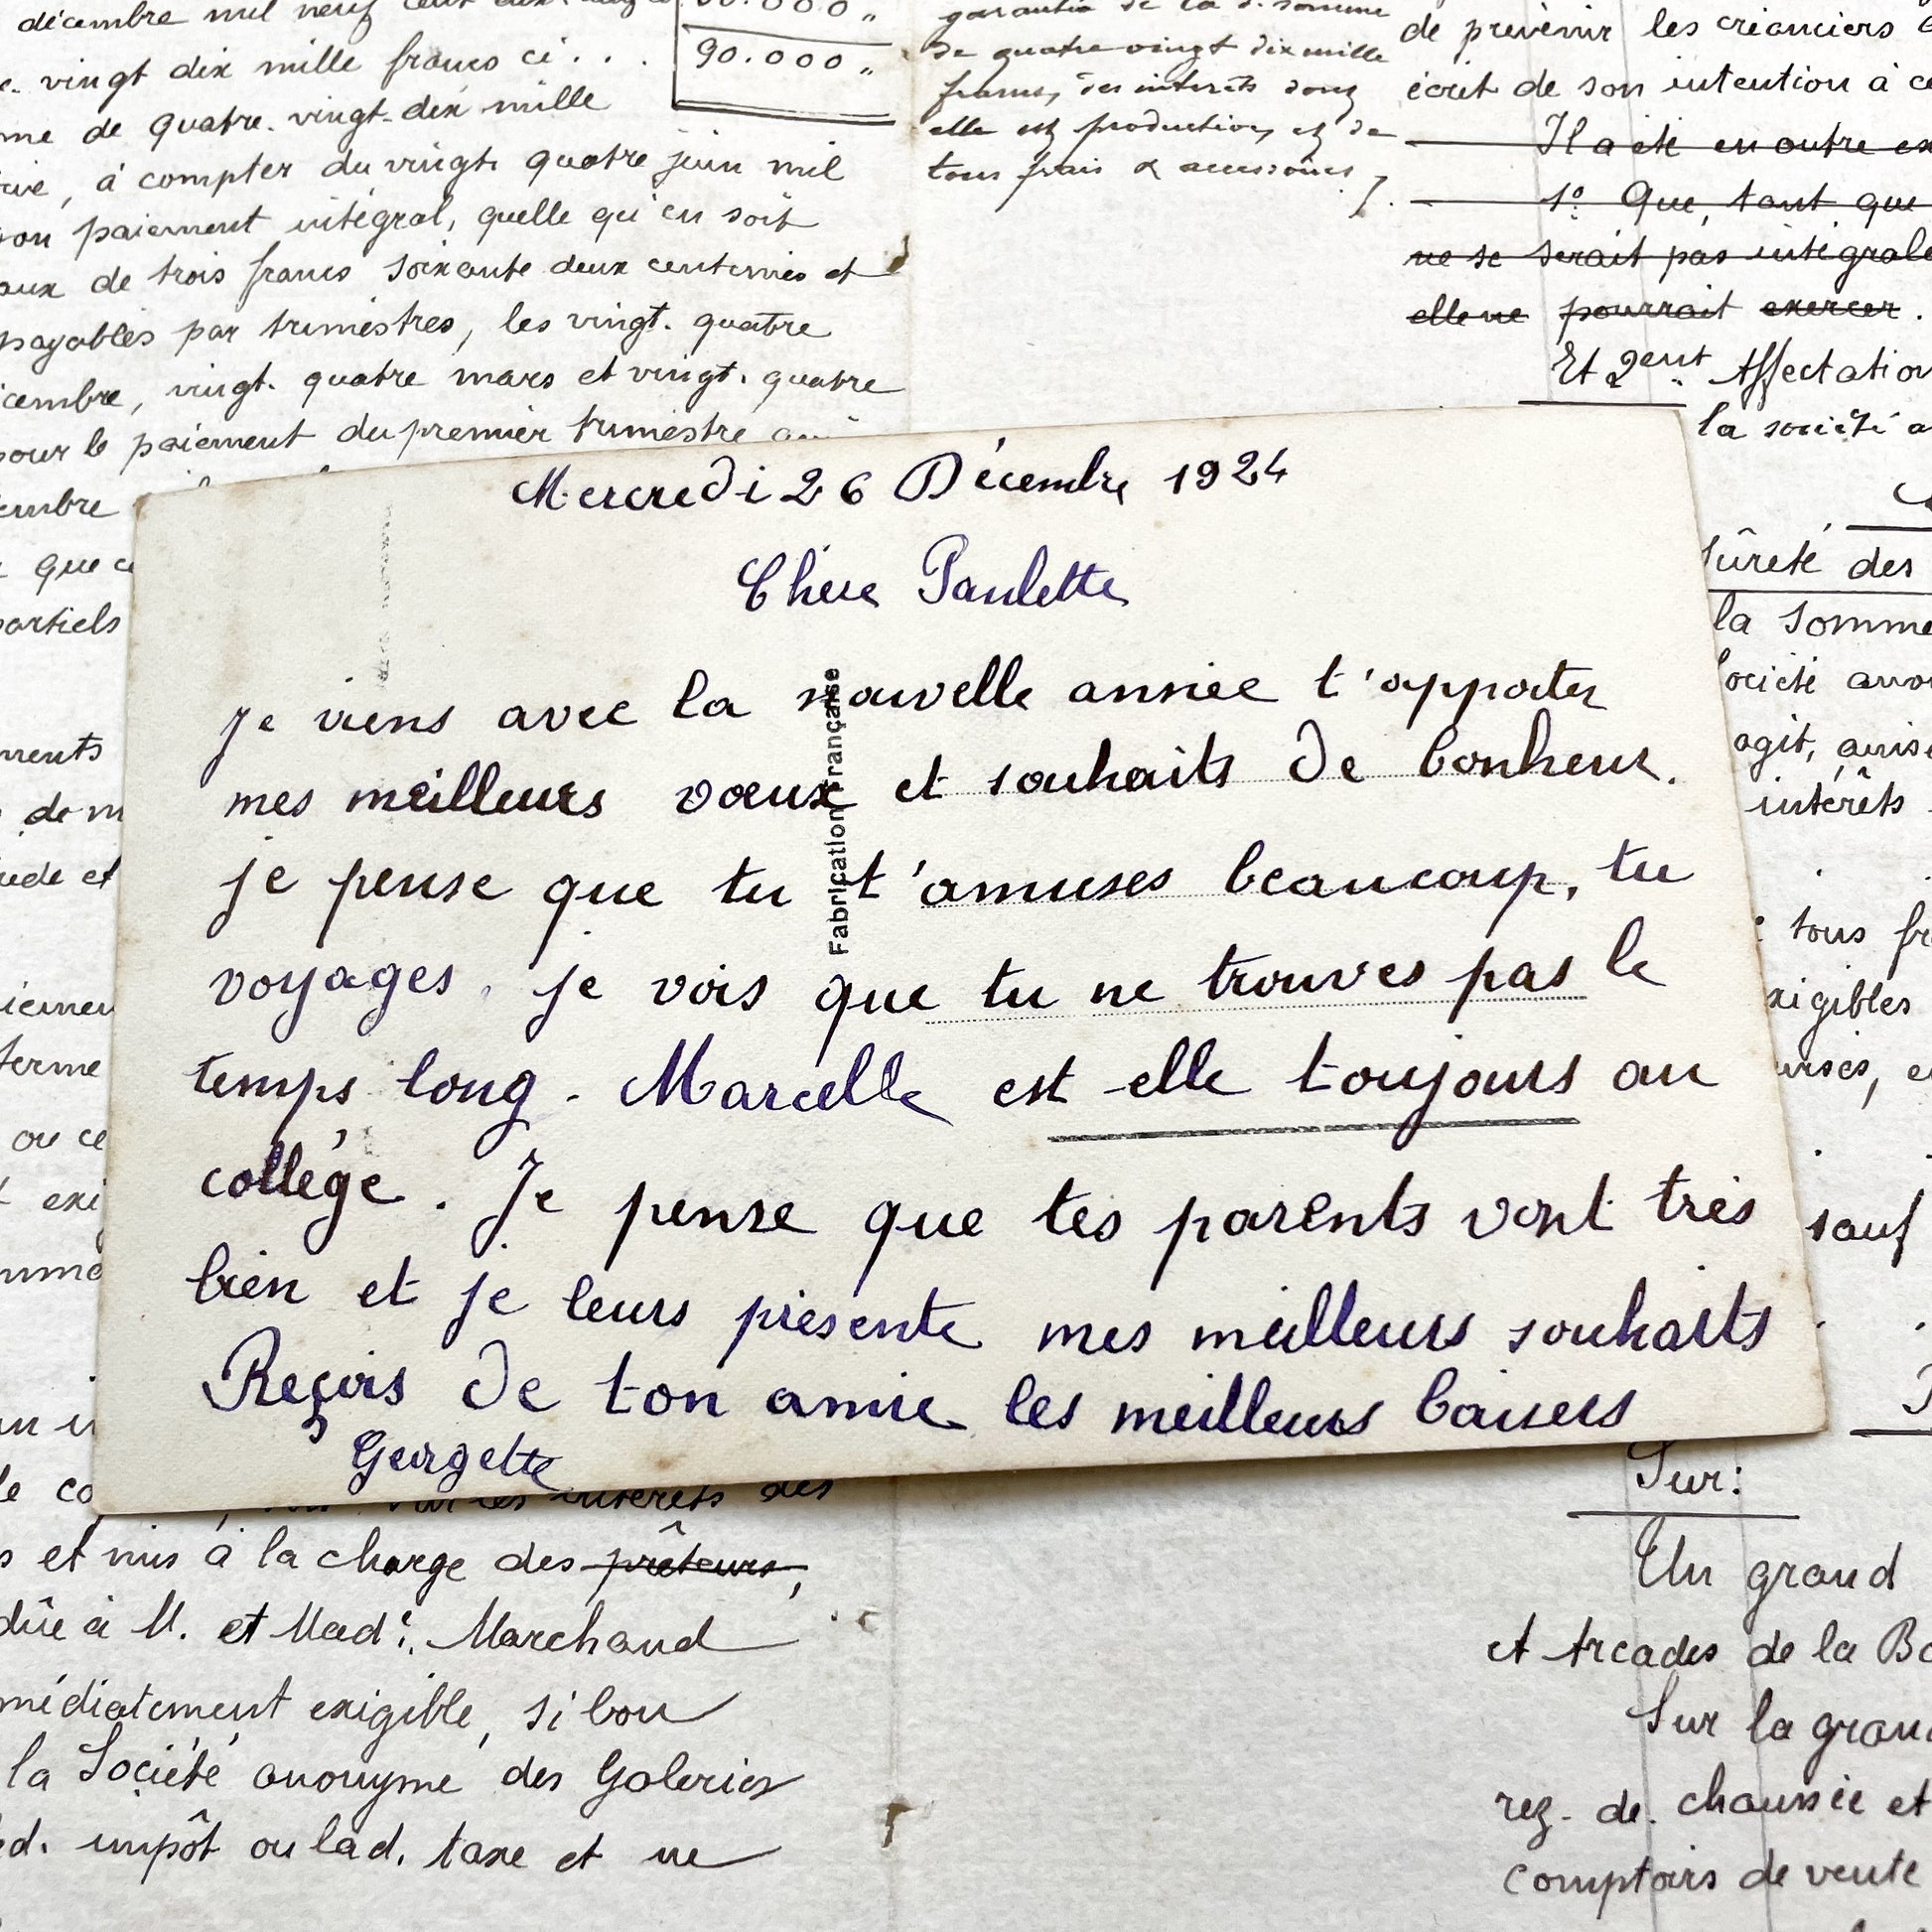 décembre mil neuf cent
90.000 "
vingt dix mille francs ci . . .
de quatre. vingt-dix mille
, à compter du vingt. quatre juin mil
paiement intégral, quelle qu'en soit
de trois francs soixante deux centimes et
payables par trimestres, les vingt. quatre
vingt. quatre mars et vingt. quatre
le paiement du premier trimestre
que
partiels
terme
ou ce
garantie de la d. somme
de quatre vingt dix mille
francs, des intérêts dont
elle est production, et de
tous frais & accessoires
de prévenir les créanciers
écrit de son intention à
Il a été en outre
1º Que, tant que
ne se serait pas
elle ne pourrait exercer .
Et 2ent Affectation
la société
sûreté des
la somme
agit,
intérêts
tous
exigibles
sauf
Mercredi 26 Décembre 1924
Chère Paulette
je viens avec la nouvelle année t'apporter
mes meilleurs vœux et souhaits de bonheur.
je pense que tu t'amuses beaucoup, tu
voyages. je vois que tu ne trouves pas le
temps long. Marcelle est-elle toujours au
collége. Je pense que tes parents vont très
bien et je leurs présente mes meilleurs souhaits
Reçois de ton amie les meilleurs baisers
Georgette
Fabrication Française
intérêts des
et mis à la charge des prêteurs,
dûe à M. et Made. Marchand
exigible, si bon
la Société anonyme des Galeries
impôt ou lad. taxe et ne
Sur:
Un grand
et Arcades de la
Sur la
rez-de-chaussée et
comptoirs de vente